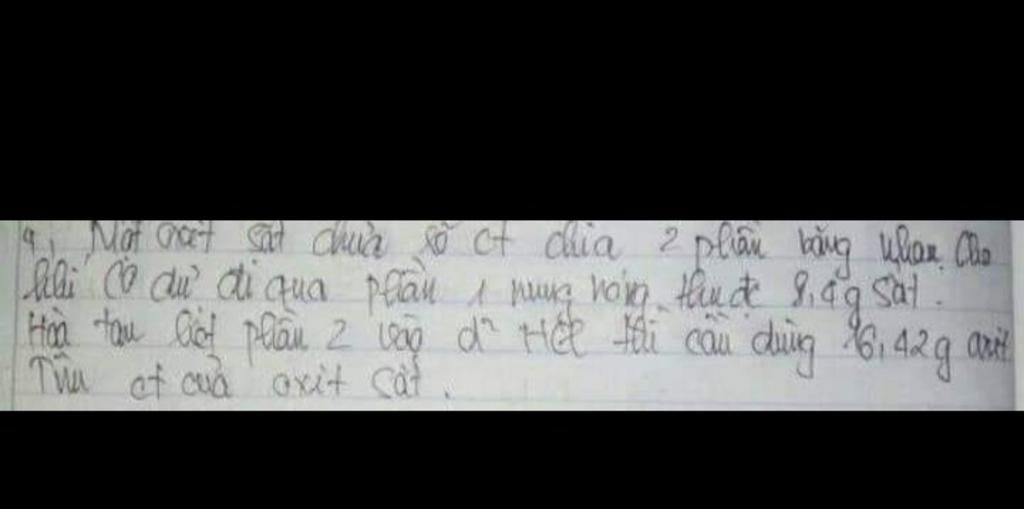 9, Một oxit sắt chưa rõ ct chia 2 phần bằng nhau. Cho
khí CO dư đi qua phần 1 nung nóng thu đc 8,4g sắt.
Hòa tan hết phần 2 vào d² HCl thì cần dùng 16,42g axit
Tìm ct của oxit sắt.